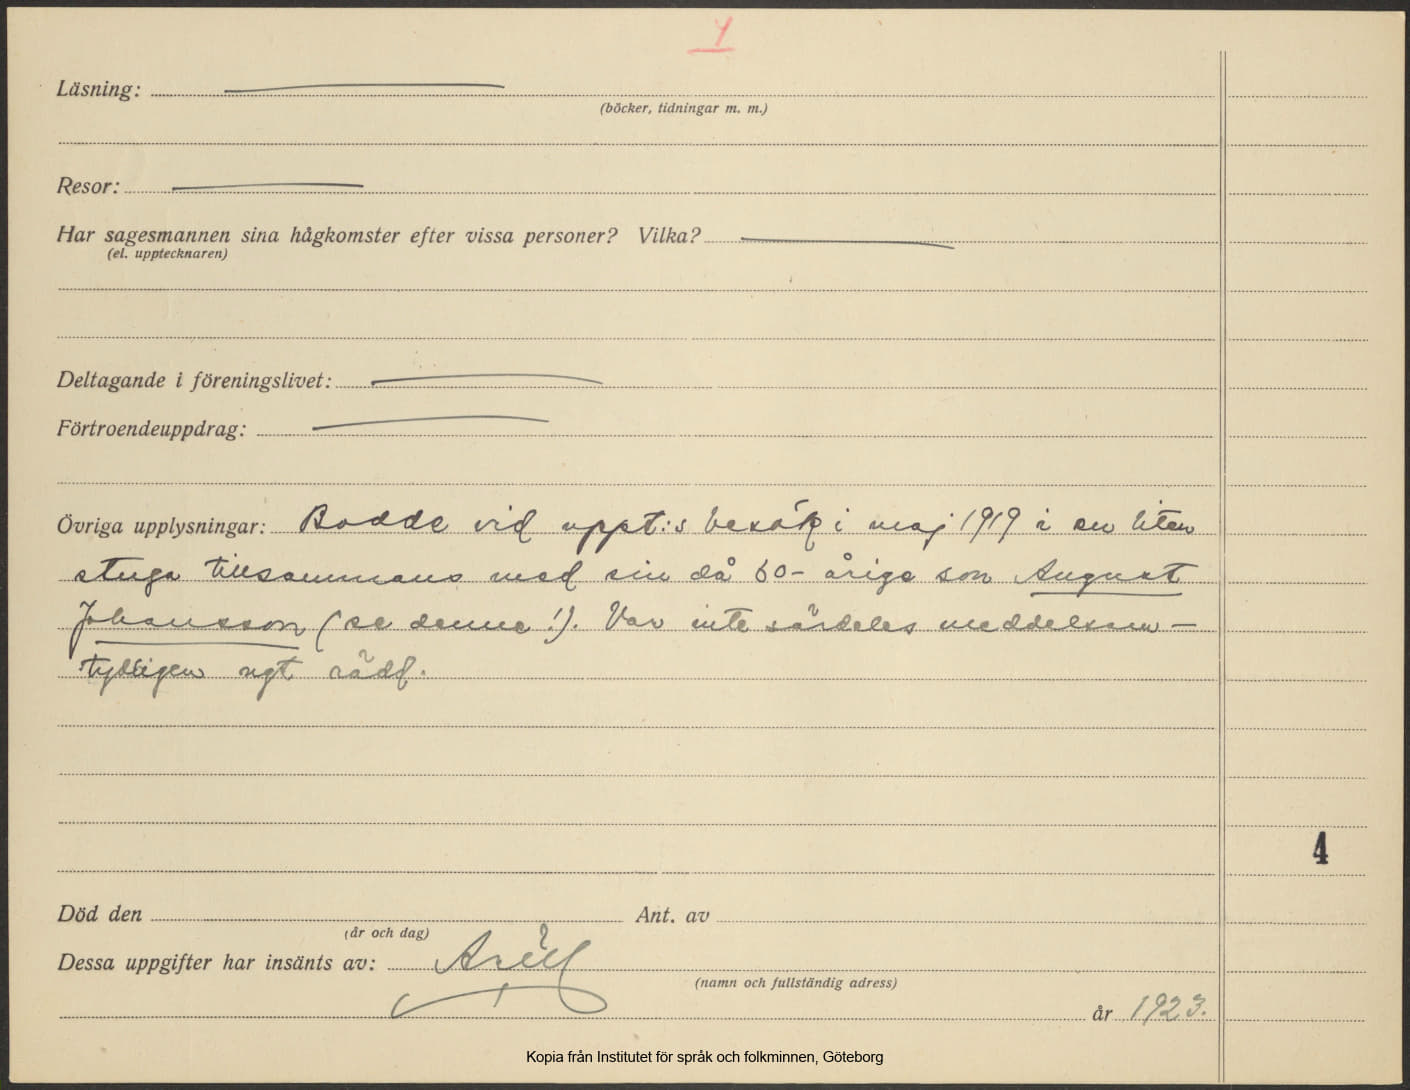 Läsning:
(böcker, tidningar m. m.)
Resor:
Har sagesmannen sina hågkomster efter vissa personer? Vilka?
(el. upptecknaren)
Deltagande i föreningslivet:
Förtroendeuppdrag:
Övriga upplysningar: Bodde vid uppt:s besök i maj 1919 i en liten
stuga tillsammans med sin då 60-årige son August
Johansson (se denne!). Var inte särdeles meddelsam –
tydligen ngt rädd.
4
Död den Ant. av
(år och dag)
Dessa uppgifter har insänts av:
(namn och fullständig adress)
år 1923.
Kopia från Institutet för språk och folkminnen, Göteborg